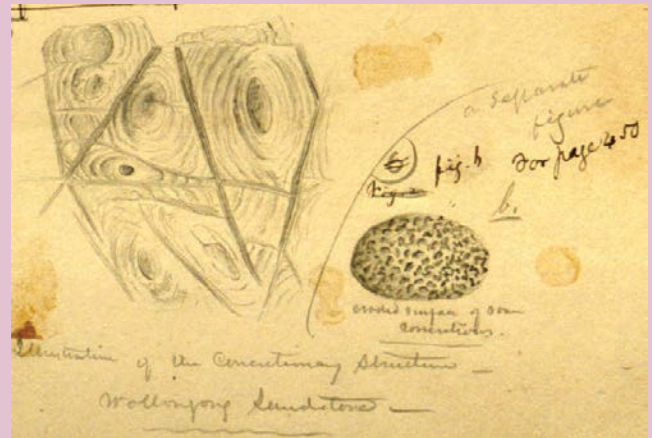 a separate
figure
fig. b For page 450
b.
eroded surface of some
concretions.
Illustration of the Concretionary Structure —
Wollongong Sandstone —